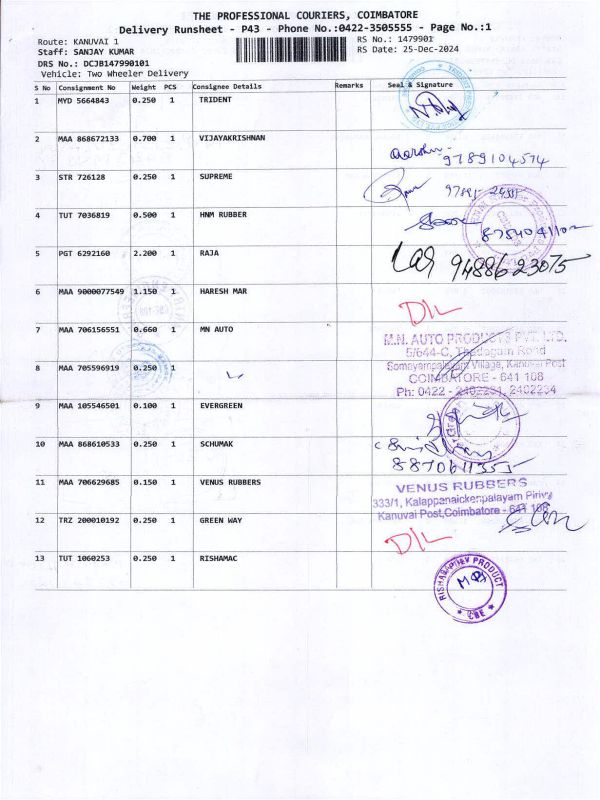 THE PROFESSIONAL COURIERS, COIMBATORE
Delivery Runsheet - P43 - Phone No.:0422-3505555 - Page No.:1
Route: KANUVAI 1
RS No.: 1479901
Staff: SANJAY KUMAR
RS Date: 25-Dec-2024
DRS No.: DCJB147990101
Vehicle: Two Wheeler Delivery
S No Consignment No Weight PCS Consignee Details Remarks Seal & Signature
1 MYD 5664843 0.250 1 TRIDENT
2 MAA 868672133 0.700 1 VIJAYAKRISHNAN
9789104574
3 STR 726128 0.250 1 SUPREME
4 TUT 7036819 0.500 1 HNM RUBBER
5 PGT 6292160 2.200 1 RAJA
9488623075
6 MAA 9000077549 1.150 1 HARESH MAR
D/L
7 MAA 706156551 0.660 1 MN AUTO
M.N. AUTO PRODUCTS PVT. LTD.
5/644-C, Thadagam Road
Somayampalayam Village, Kanuvai Post
COIMBATORE - 641 108
Ph: 0422 - 2402231, 2402234
8 MAA 705596919 0.250 1
9 MAA 105546501 0.100 1 EVERGREEN
10 MAA 868610533 0.250 1 SCHUMAK
8870611355
11 MAA 706629685 0.150 1 VENUS RUBBERS
VENUS RUBBERS
333/1, Kalappanaickenpalayam Pirivu
Kanuvai Post,Coimbatore - 641 108
12 TRZ 200010192 0.250 1 GREEN WAY
D/L
13 TUT 1060253 0.250 1 RISHAMAC
PRODUCT
CBE